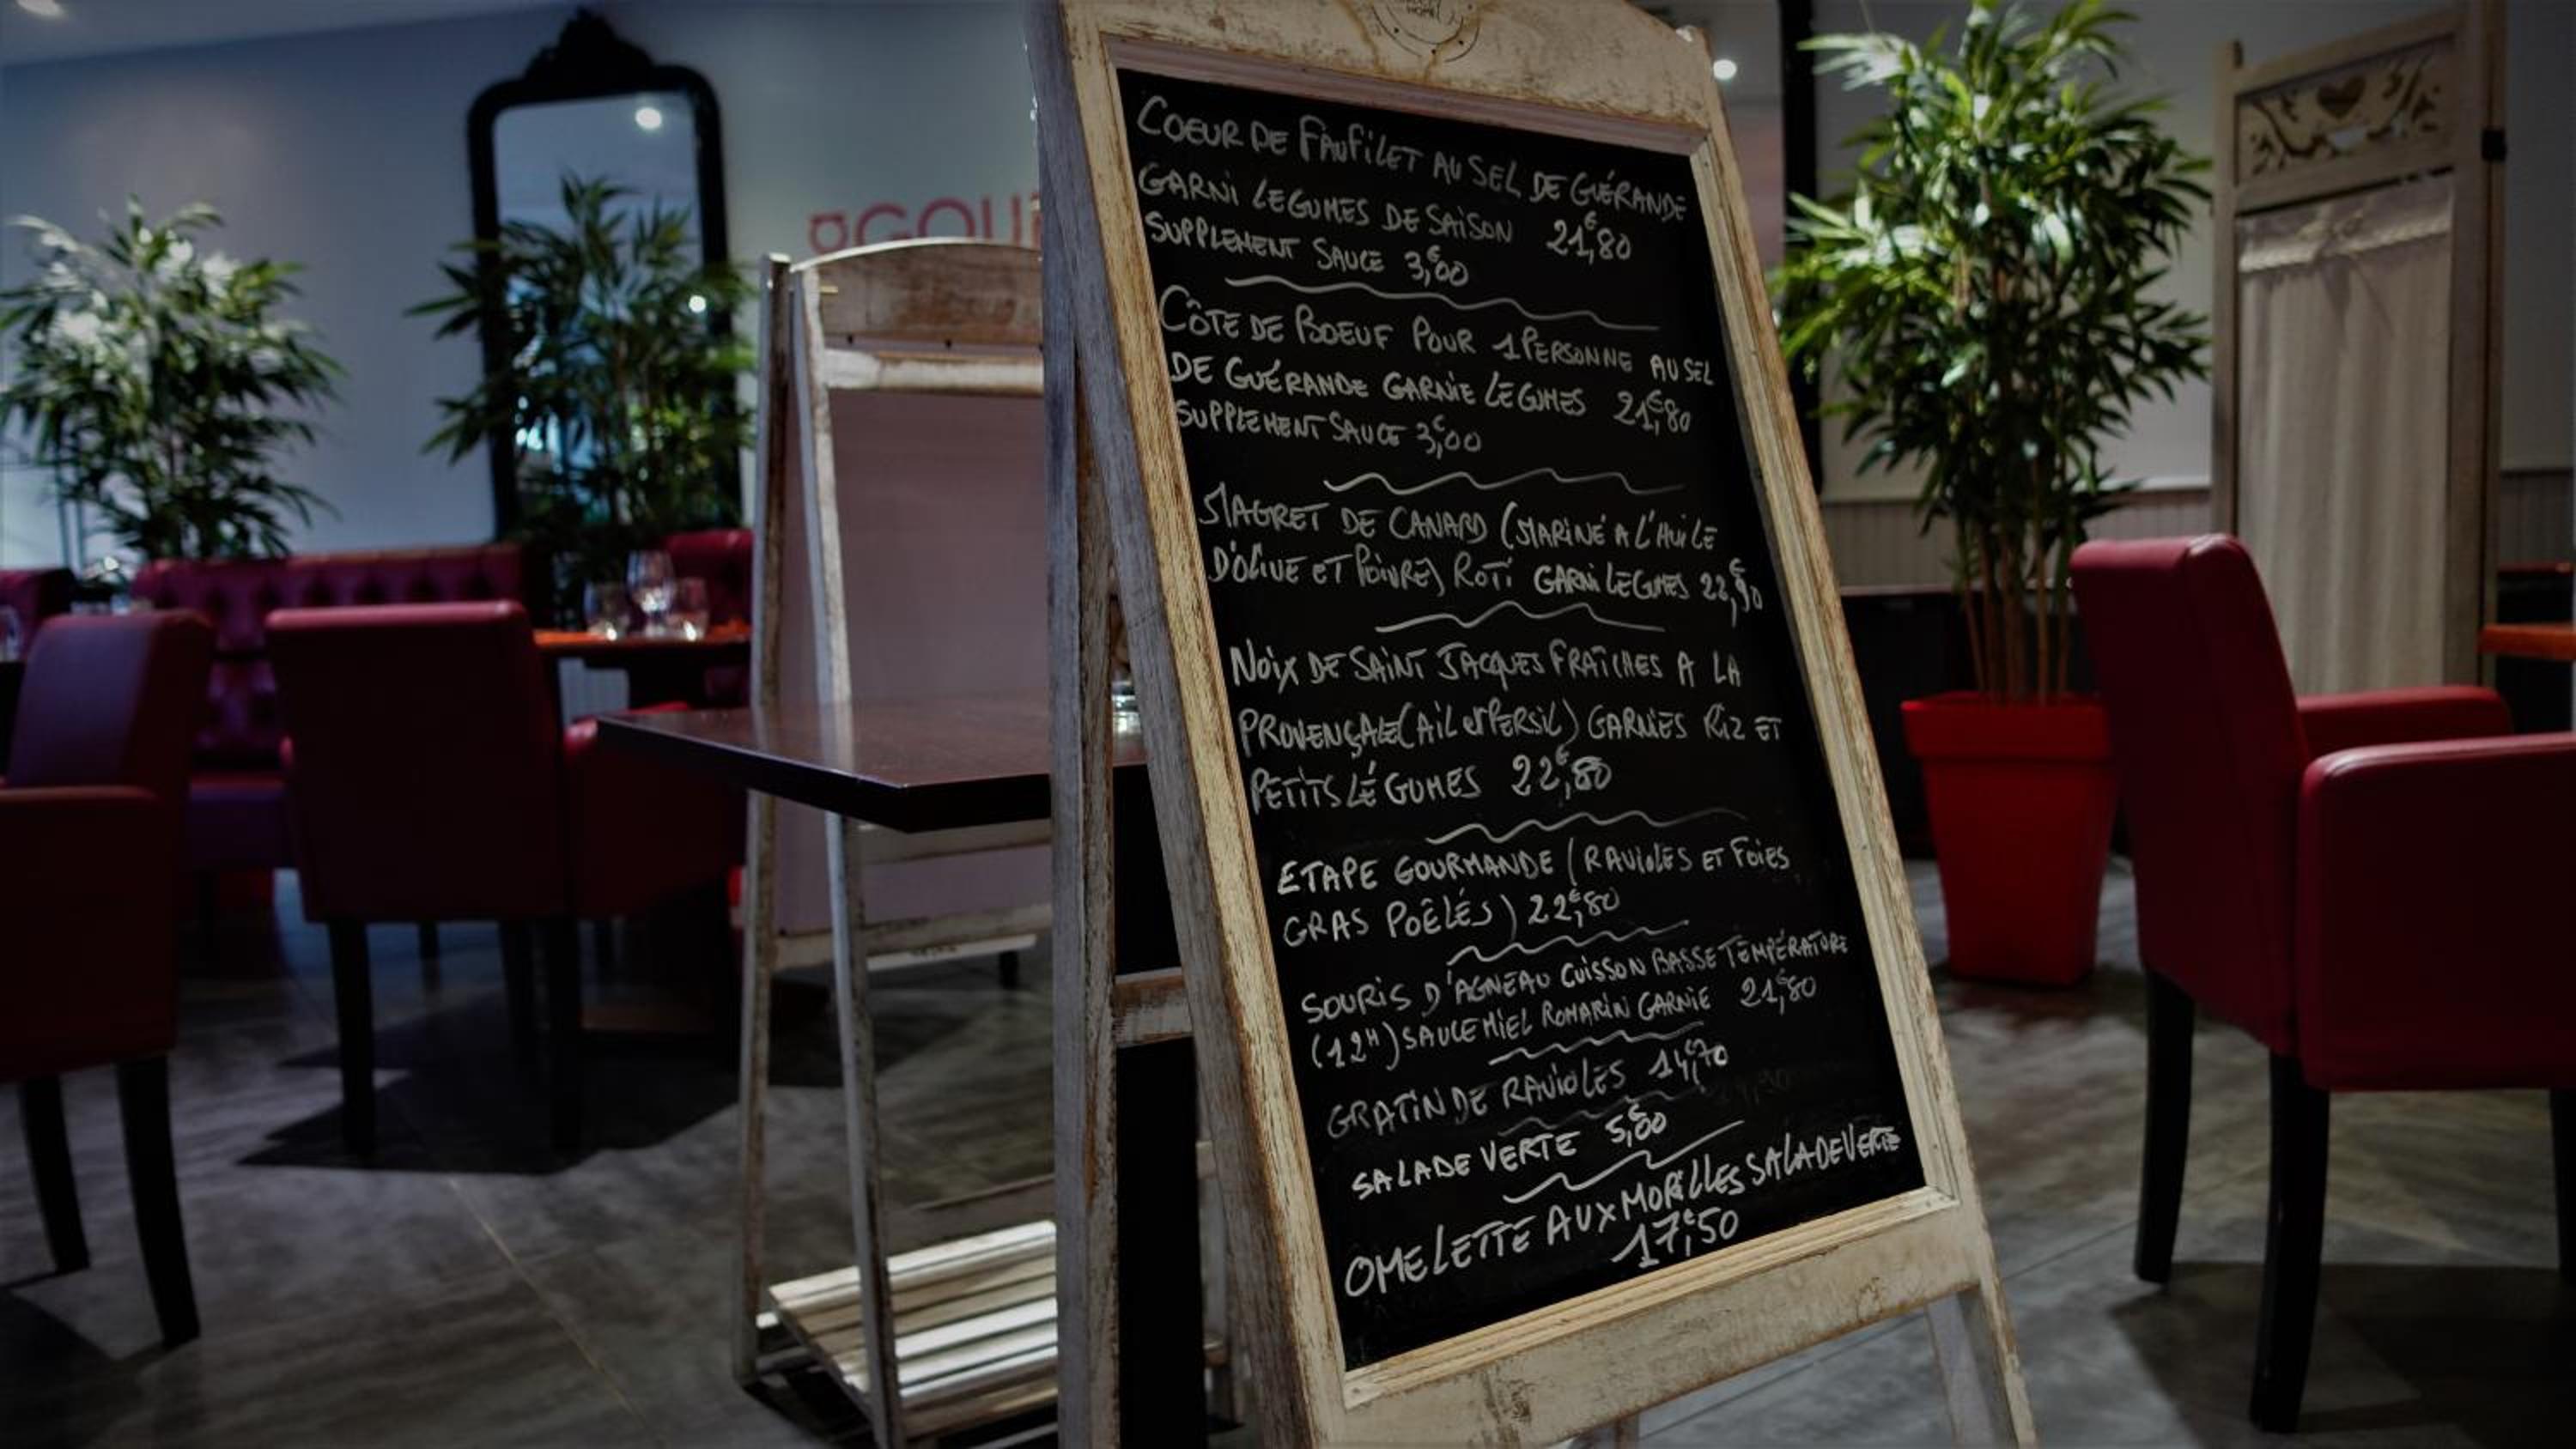 HOME
GOU
COEUR DE FAUFILET AU SEL DE GUÉRANDE
GARNI LEGUMES DE SAISON 21€,80
SUPPLEMENT SAUCE 3,€00
CÔTE DE BOEUF POUR 1 PERSONNE AU SEL
DE GUÉRANDE GARNIE LEGUMES 21€,80
SUPPLEMENT SAUCE 3,€00
MAGRET DE CANARD (MARINÉ A L'HUILE
D'OLIVE ET POIVRE) ROTI GARNI LEGUMES 22,€90
NOIX DE SAINT JACQUES FRAÎCHES A LA
PROVENÇALE (AIL ET PERSIL) GARNIES RIZ ET
PETITS LÉGUMES 22€,80
ETAPE GOURMANDE (RAVIOLES ET FOIES
GRAS POÊLÉS) 22€,80
SOURIS D'AGNEAU CUISSON BASSE TEMPÉRATURE
(12H) SAUCE MIEL ROMARIN GARNIE 21€,80
GRATIN DE RAVIOLES 14,€70
SALADE VERTE 5,€00
OMELETTE AUX MORILLES SALADE VERTE
17€,50